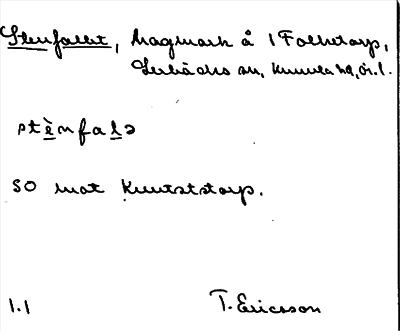 Stenfallet, hagmark å 1 Folketorp,
Lerbäcks sn, Kumla hd, Ör.l.
stènfalə
SO mot Knutstorp.
1.1 T. Ericsson